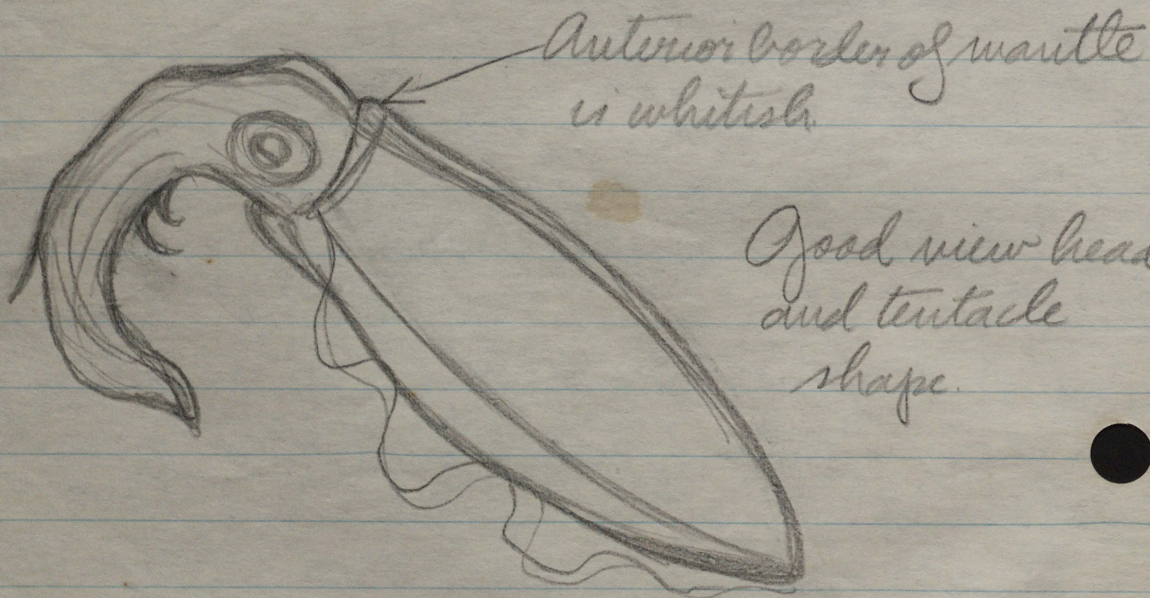 Anterior border of mantle
is whitish.
Good view head
and tentacle
shape.